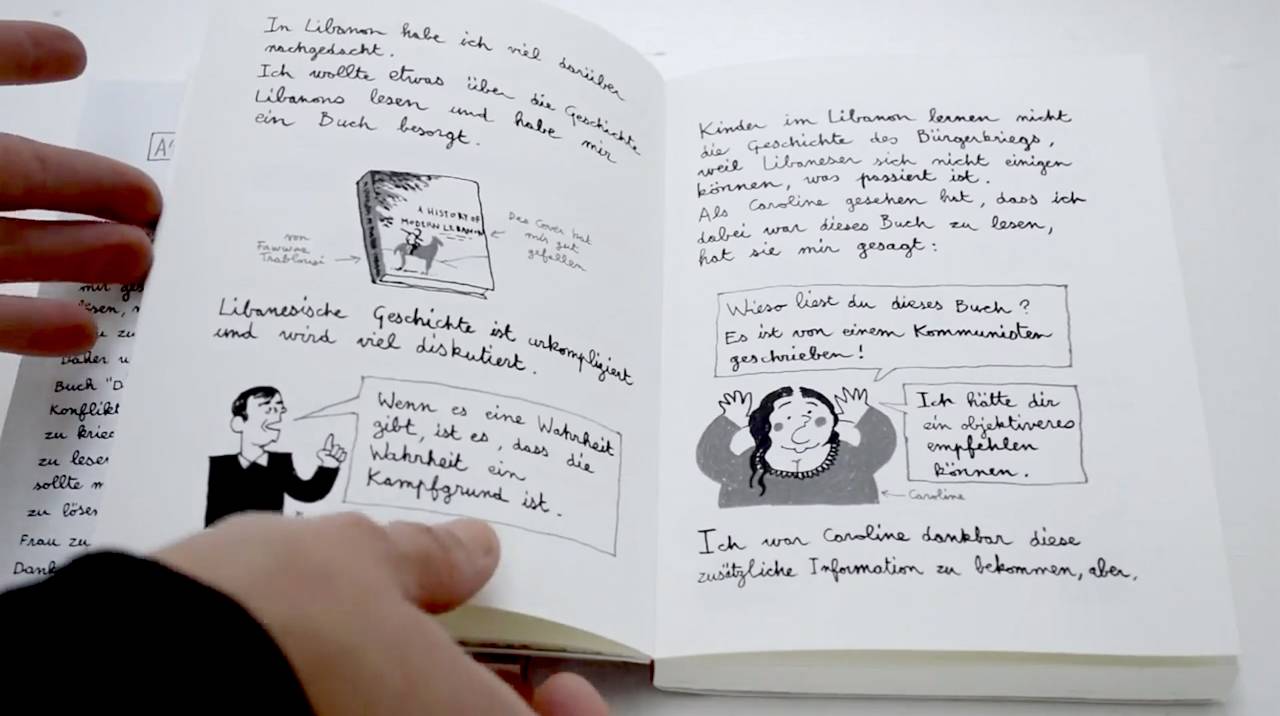 In Libanon habe ich viel darüber
nachgedacht.
Ich wollte etwas über die Geschichte
Libanons lesen und habe mir
ein Buch besorgt.
A HISTORY OF
MODERN LEBANON
Das Cover hat
mir gut
gefallen
von
Fawwaz
Trablousi
Libanesische Geschichte ist urkompliziert
und wird viel diskutiert.
Wenn es eine Wahrheit
gibt, ist es, dass die
Wahrheit ein
Kampfgrund ist.
Kinder im Libanon lernen nicht
die Geschichte des Bürgerkriegs,
weil Libaneser sich nicht einigen
können, was passiert ist.
Als Caroline gesehen hat, dass ich
dabei war dieses Buch zu lesen,
hat sie mir gesagt:
Wieso liest du dieses Buch?
Es ist von einem Kommunisten
geschrieben!
Ich hätte dir
ein objektiveres
empfehlen
können.
Caroline
Ich war Caroline dankbar diese
zusätzliche Information zu bekommen, aber,
Buch "D
Konflikt
zu krie
zu lese
sollte m
zu löse
Frau zu
Dank